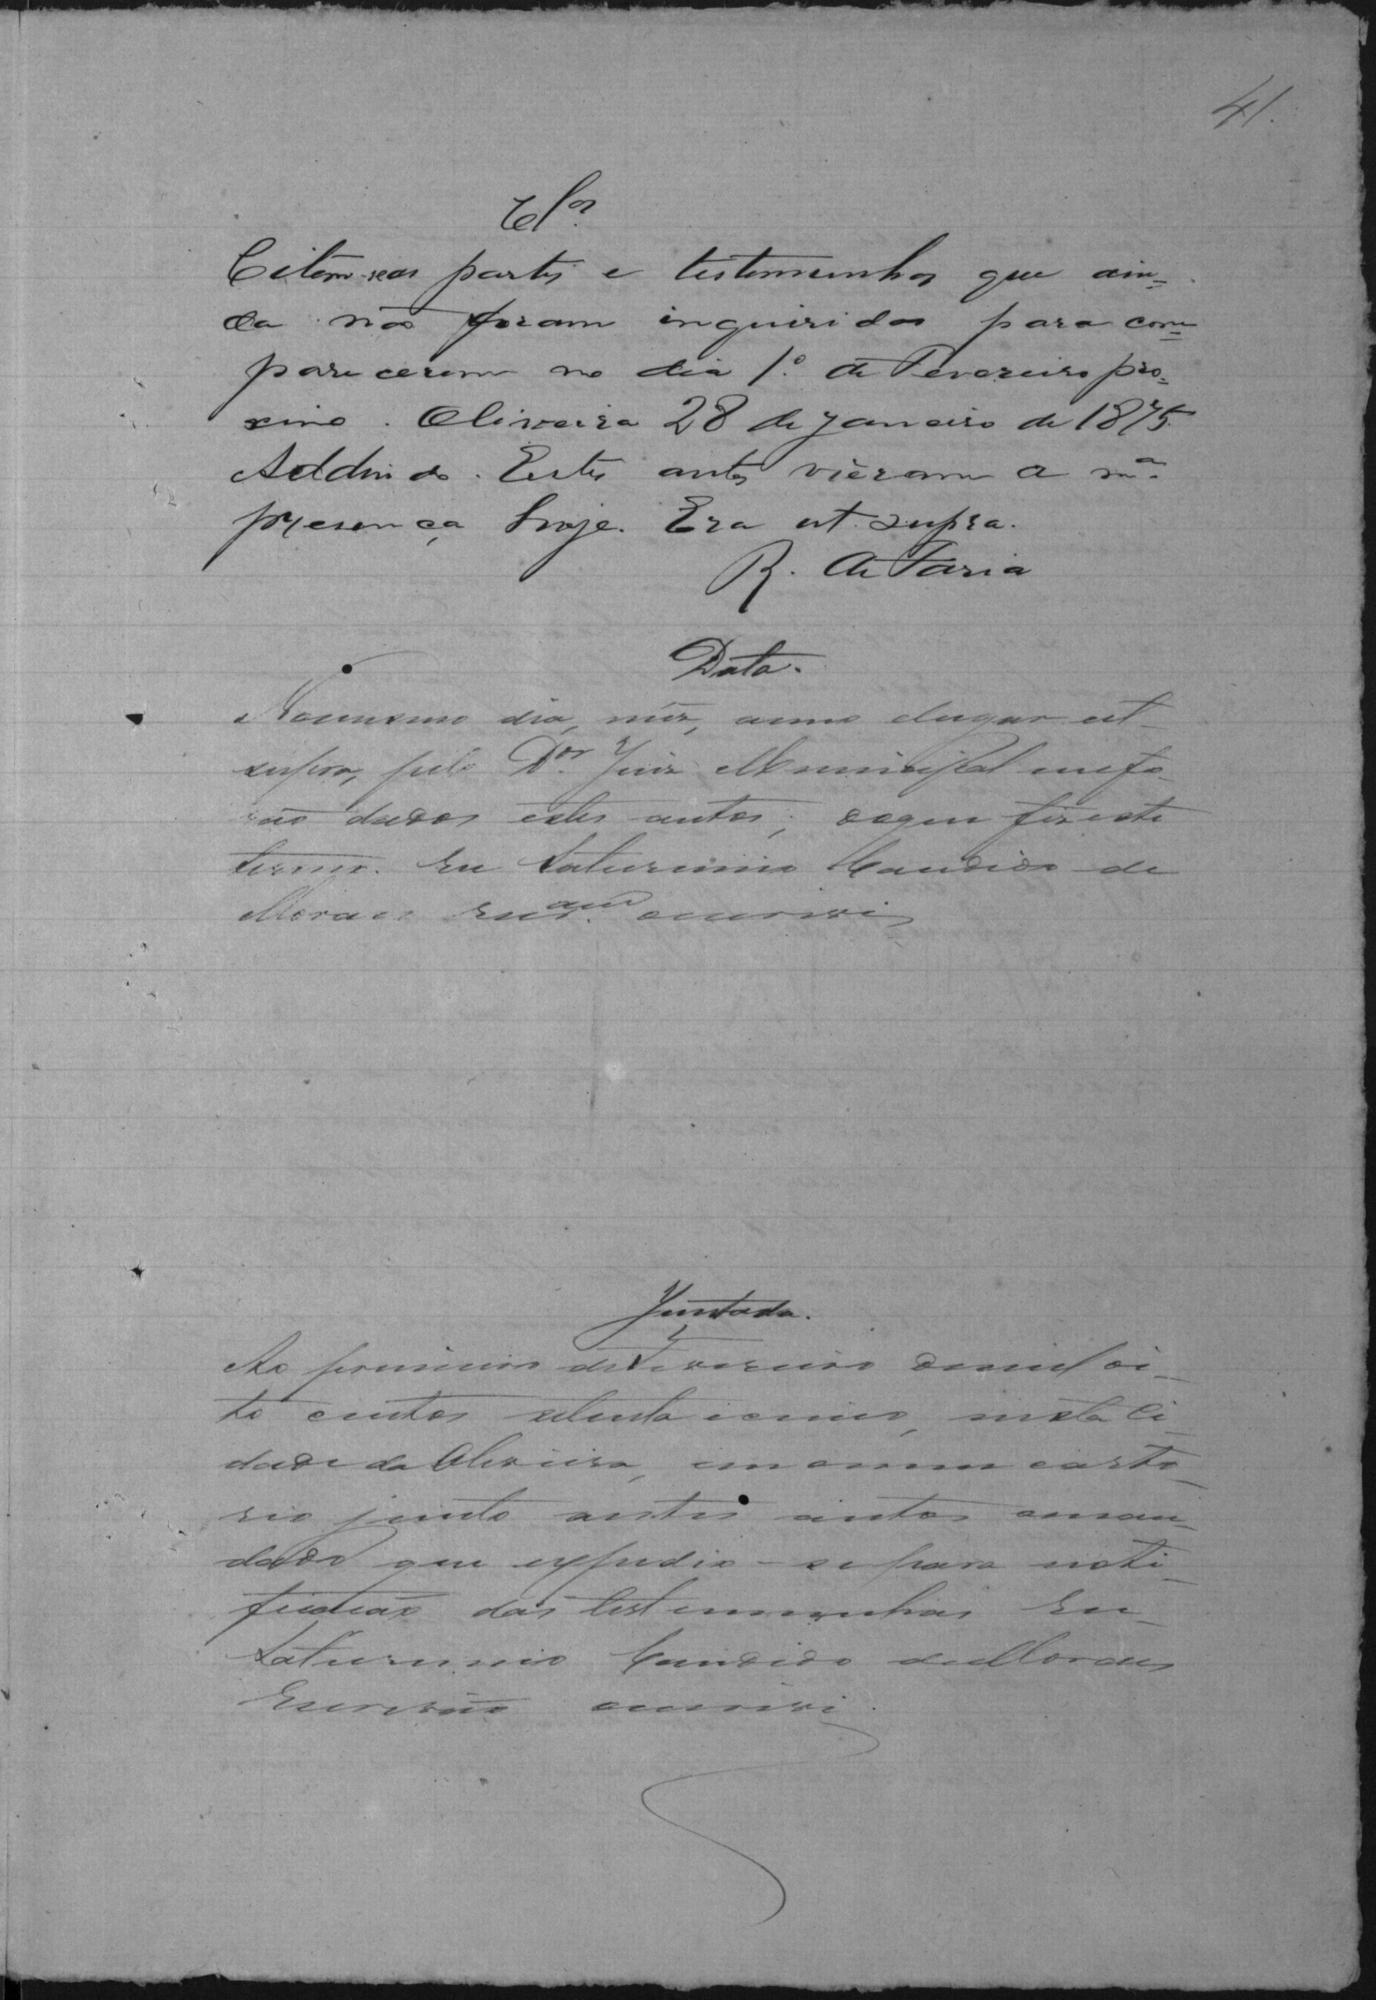 41.
Cls.os
Citem-se as partes e testemunhas que ain=
da não foram inquiridas para com=
parecerem no dia 1.º de Fevereiro pro=
ximo. Oliveira 28 de Janeiro de 1875.
Addindo. Estes autos vieram a m.a
presença hoje. Era ut supra.
R. de Faria
Data.
No mesmo dia, mez, anno e lugar ut
supra, pelo D.or Juiz Municipal me fo-
rão dados estes autos; do que fiz este
termo. Eu Saturnino Candido de
Moraes Escr.am o escrivi
Juntada.
Ao primeiro de Fevereiro de mil oi-
to centos setenta e cinco, nesta Ci-
dade da Oliveira, em o meu carto-
rio junto a estes autos o man-
dado que expedio-se para noti-
ficação das testemunhas Eu
Saturnino Candido de Moraes
Escrivão o escrivi.